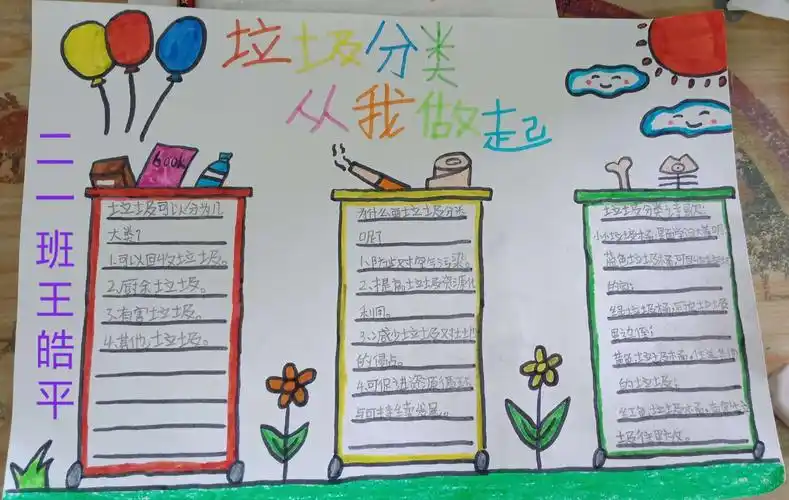 垃圾分类
从我做起
二一班王皓平
book
垃圾可以分为几
大类?
1.可以回收垃圾。
2.厨余垃圾。
3.有害垃圾。
4.其他垃圾。
为什么要垃圾分类
呢?
1.防止对空气污染。
2.提高垃圾资源化
利用。
3.减少垃圾对土地
的侵占。
4.可促进资源循环
与可持续发展。
垃圾分类
小小垃圾桶
蓝色垃圾桶可回收
的
绿垃圾桶
里边倒;
黄色垃圾桶
的垃圾;
红色垃圾桶,有害垃
圾往里放。